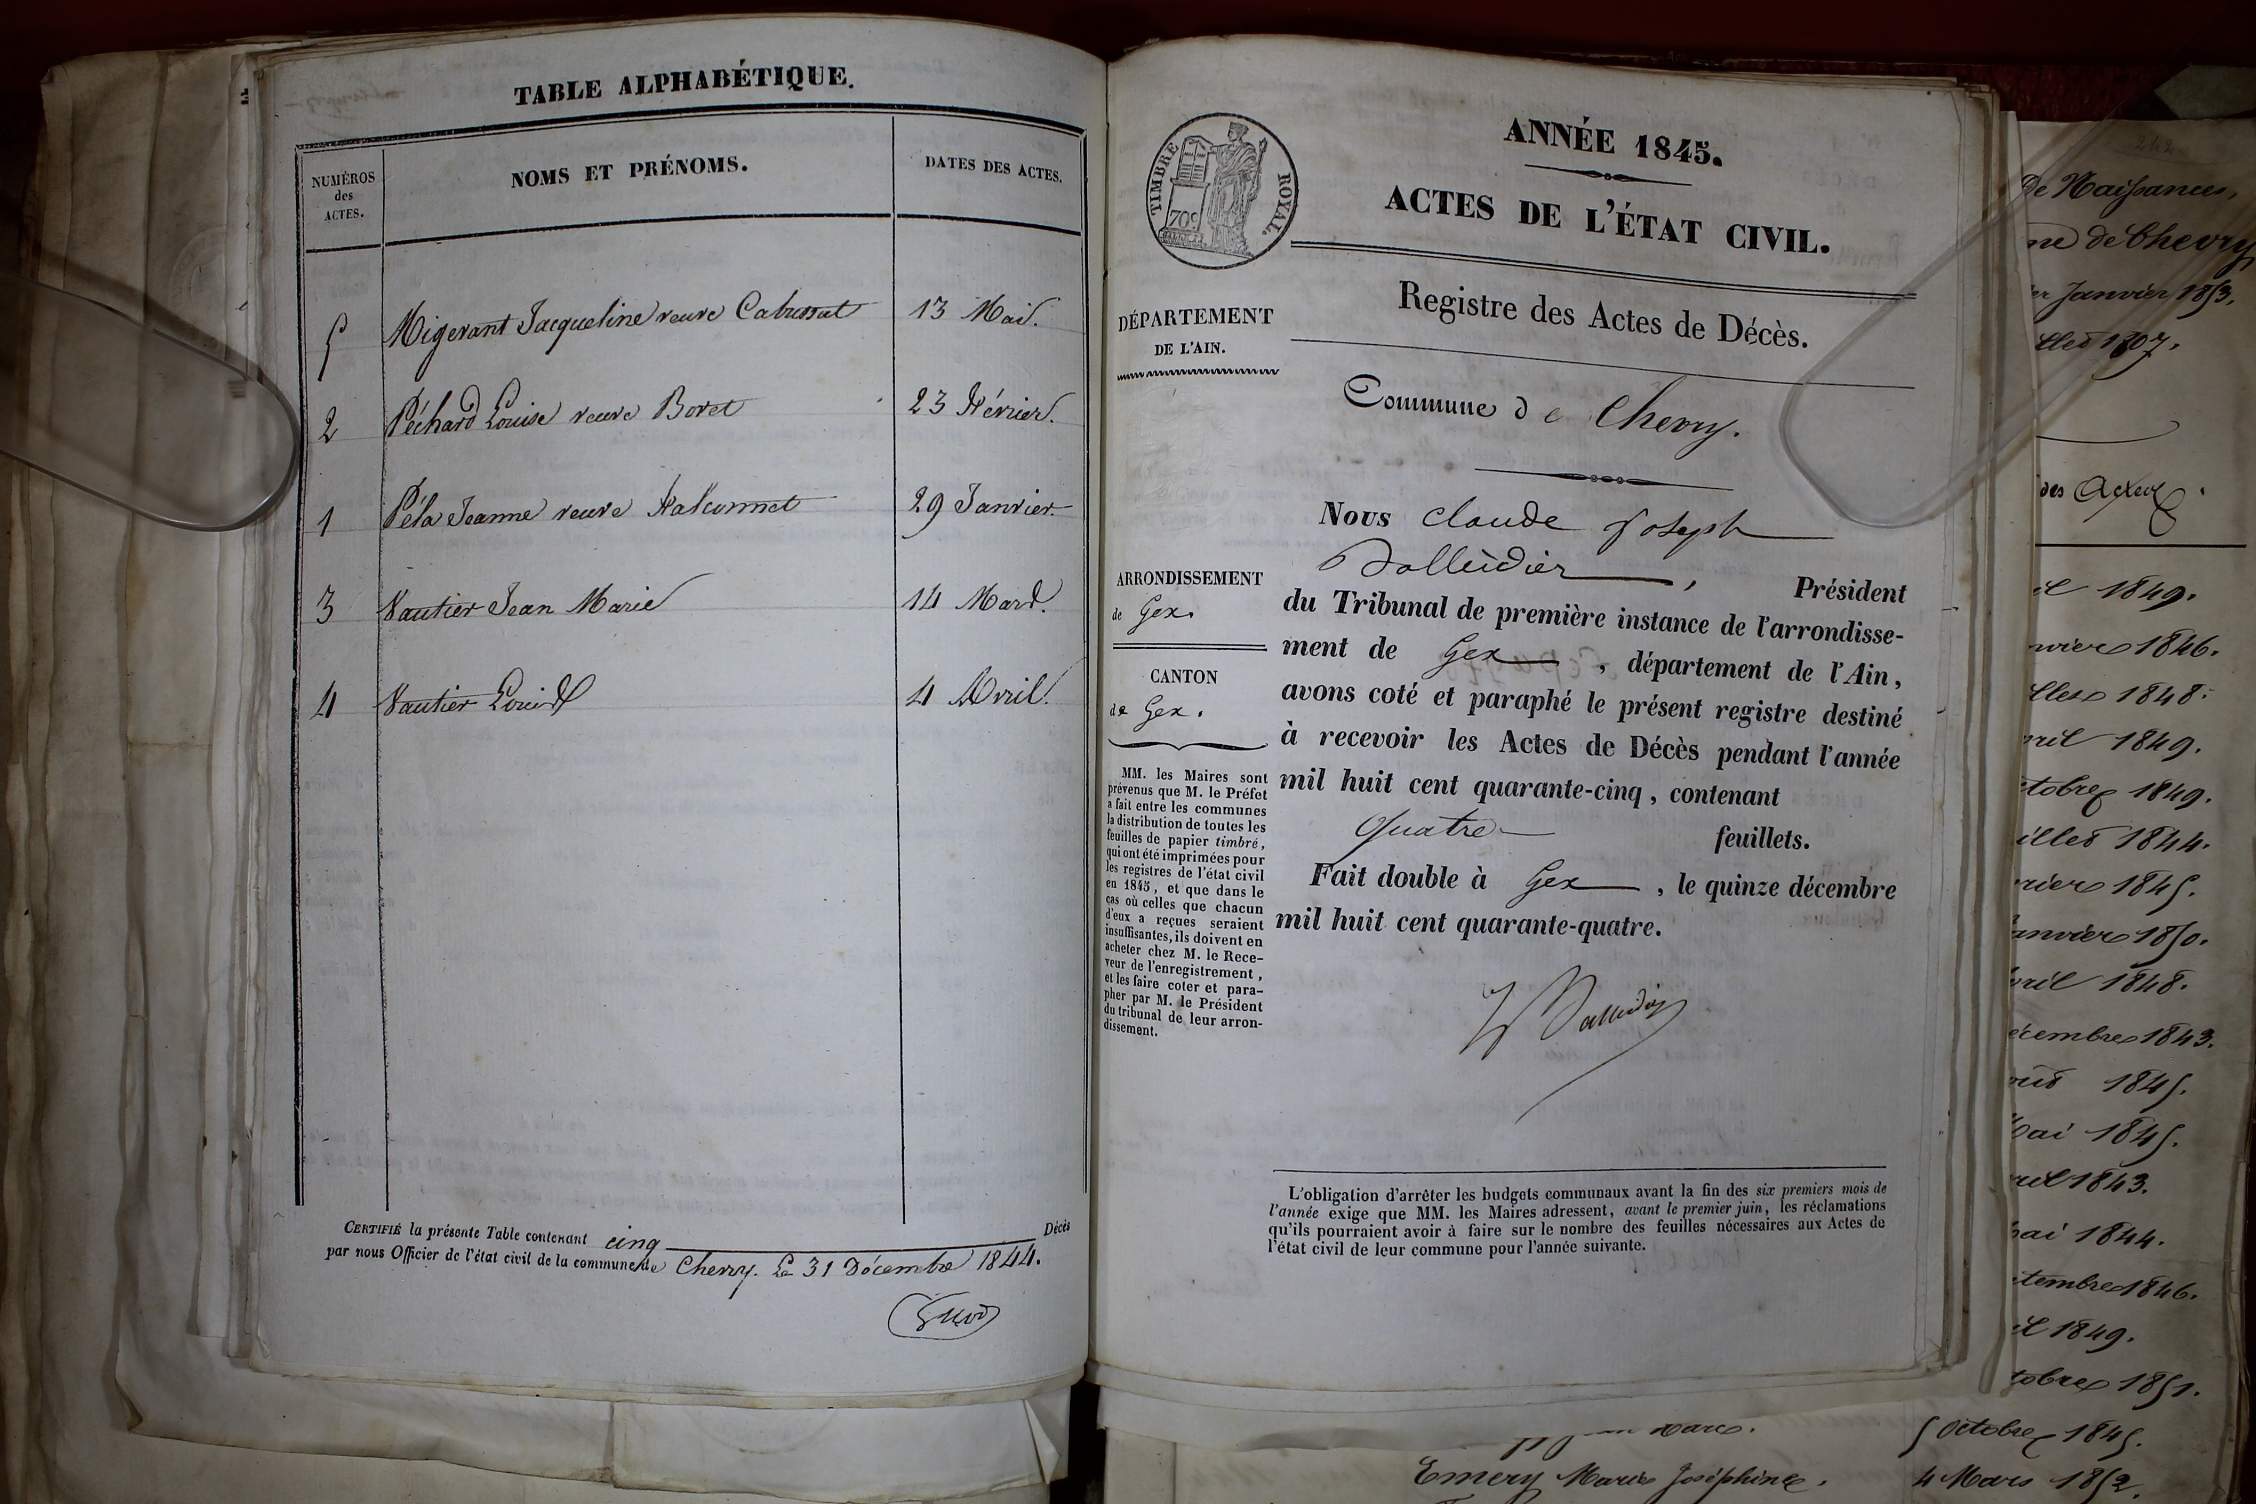 TABLE ALPHABÉTIQUE.
NUMÉROS des ACTES.
NOMS ET PRÉNOMS.
DATES DES ACTES.
5 Migerant Jacqueline veuve Cabussat 13 Mai.
2 Péchard Louise veuve Bovet 23 Février.
1 Péla Jeanne veuve Falconnet 29 Janvier.
3 Vautier Jean Marie 14 Mars.
4 Vautier Louis 4 Avril.
CERTIFIÉ la présente Table contenant cinq Décès
par nous Officier de l'état civil de la commune de Chevry. Le 31 Décembre 1844.
TIMBRE ROYAL.
70c
ANNÉE 1845.
ACTES DE L'ÉTAT CIVIL.
Registre des Actes de Décès.
DÉPARTEMENT
DE L'AIN.
Commune de Chevry.
ARRONDISSEMENT
de Gex.
CANTON
de Gex.
MM. les Maires sont
prévenus que M. le Préfet
a fait entre les communes
la distribution de toutes les
feuilles de papier timbré,
qui ont été imprimées pour
les registres de l'état civil
en 1845, et que dans le
cas où celles que chacun
d'eux a reçues seraient
insuffisantes, ils doivent en
acheter chez M. le Rece-
veur de l'enregistrement,
et les faire coter et para-
pher par M. le Président
du tribunal de leur arron-
dissement.
Nous Claude Joseph
, Président
du Tribunal de première instance de l'arrondisse-
ment de Gex, département de l'Ain,
avons coté et paraphé le présent registre destiné
à recevoir les Actes de Décès pendant l'année
mil huit cent quarante-cinq, contenant
quatre feuillets.
Fait double à Gex, le quinze décembre
mil huit cent quarante-quatre.
L'obligation d'arrêter les budgets communaux avant la fin des six premiers mois de
l'année exige que MM. les Maires adressent, avant le premier juin, les réclamations
qu'ils pourraient avoir à faire sur le nombre des feuilles nécessaires aux Actes de
l'état civil de leur commune pour l'année suivante.
de Naissances,
de Chevry
Janvier 1853.
1807.
des Actes
1849.
1846.
1848.
1849.
1849.
1844.
1845.
1850.
1848.
1843.
1845.
1845.
1843.
1844.
1846.
1849.
1851.
5 Octobre 1845.
Emery Marie Joséphine. 4 Mars 1852.